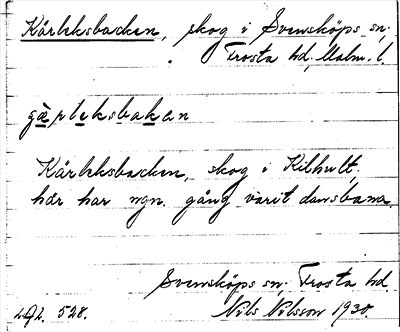 Kärleksbacken, skog i Svensköps sn.
Frosta hd, Malm. l.
Kärleksbacken, skog i Kilhult,
här har ngn. gång varit dansbana.
Svensköps sn. Frosta hd.
528. Nils Nilsson 1930.